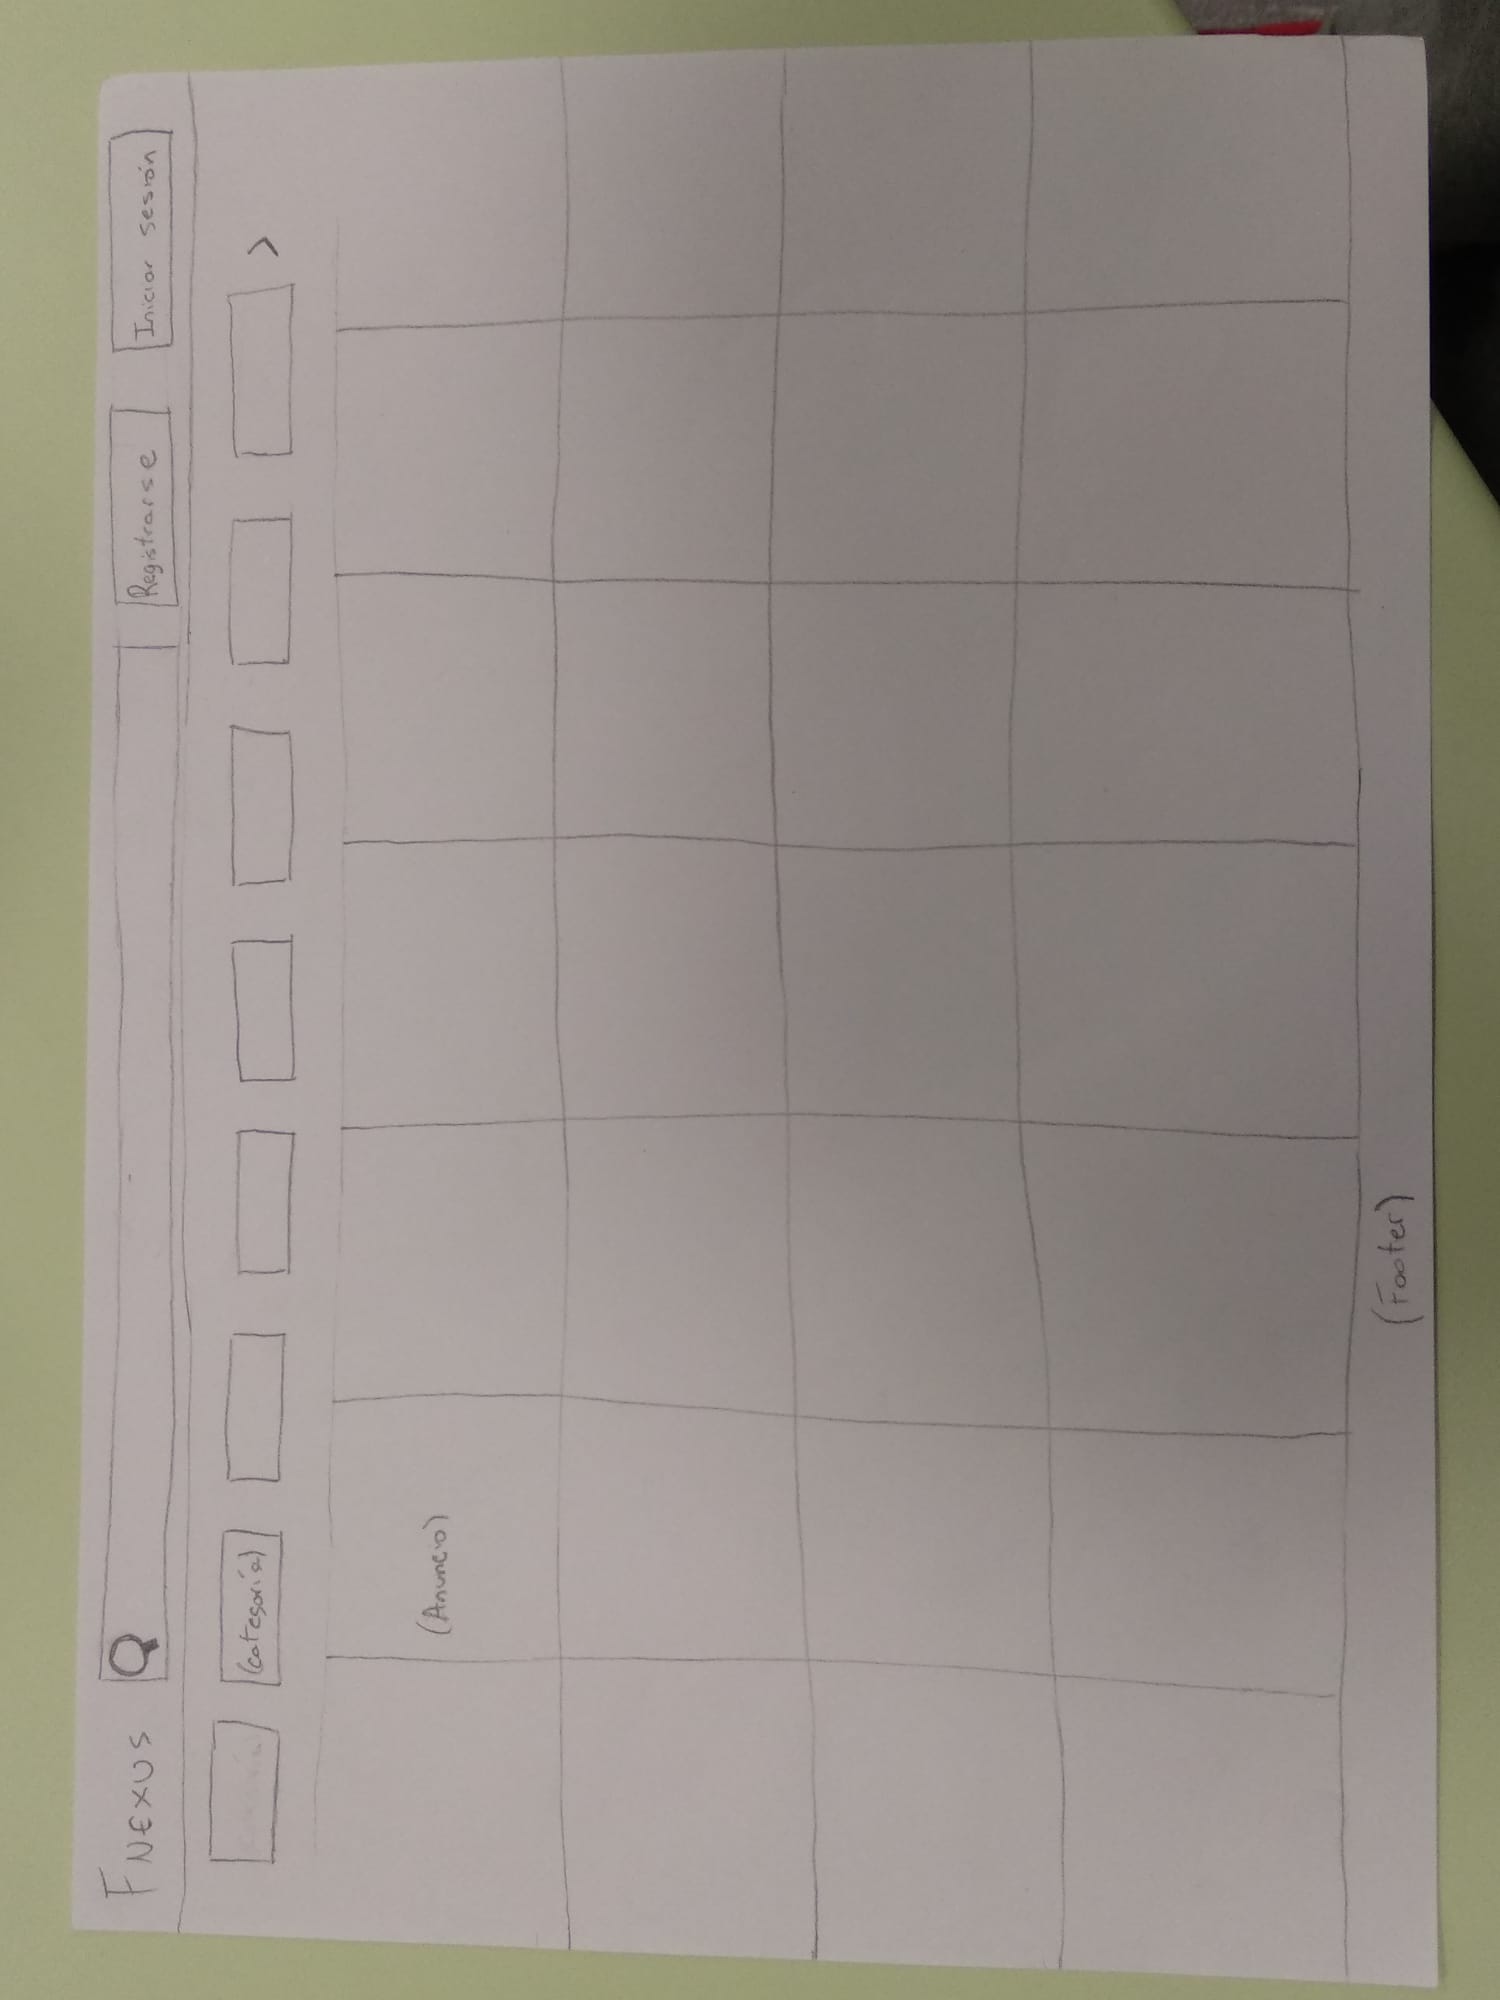 FNEXUS Registrarse Iniciar sesión
(categoría)
(Anuncio)
(Footer)